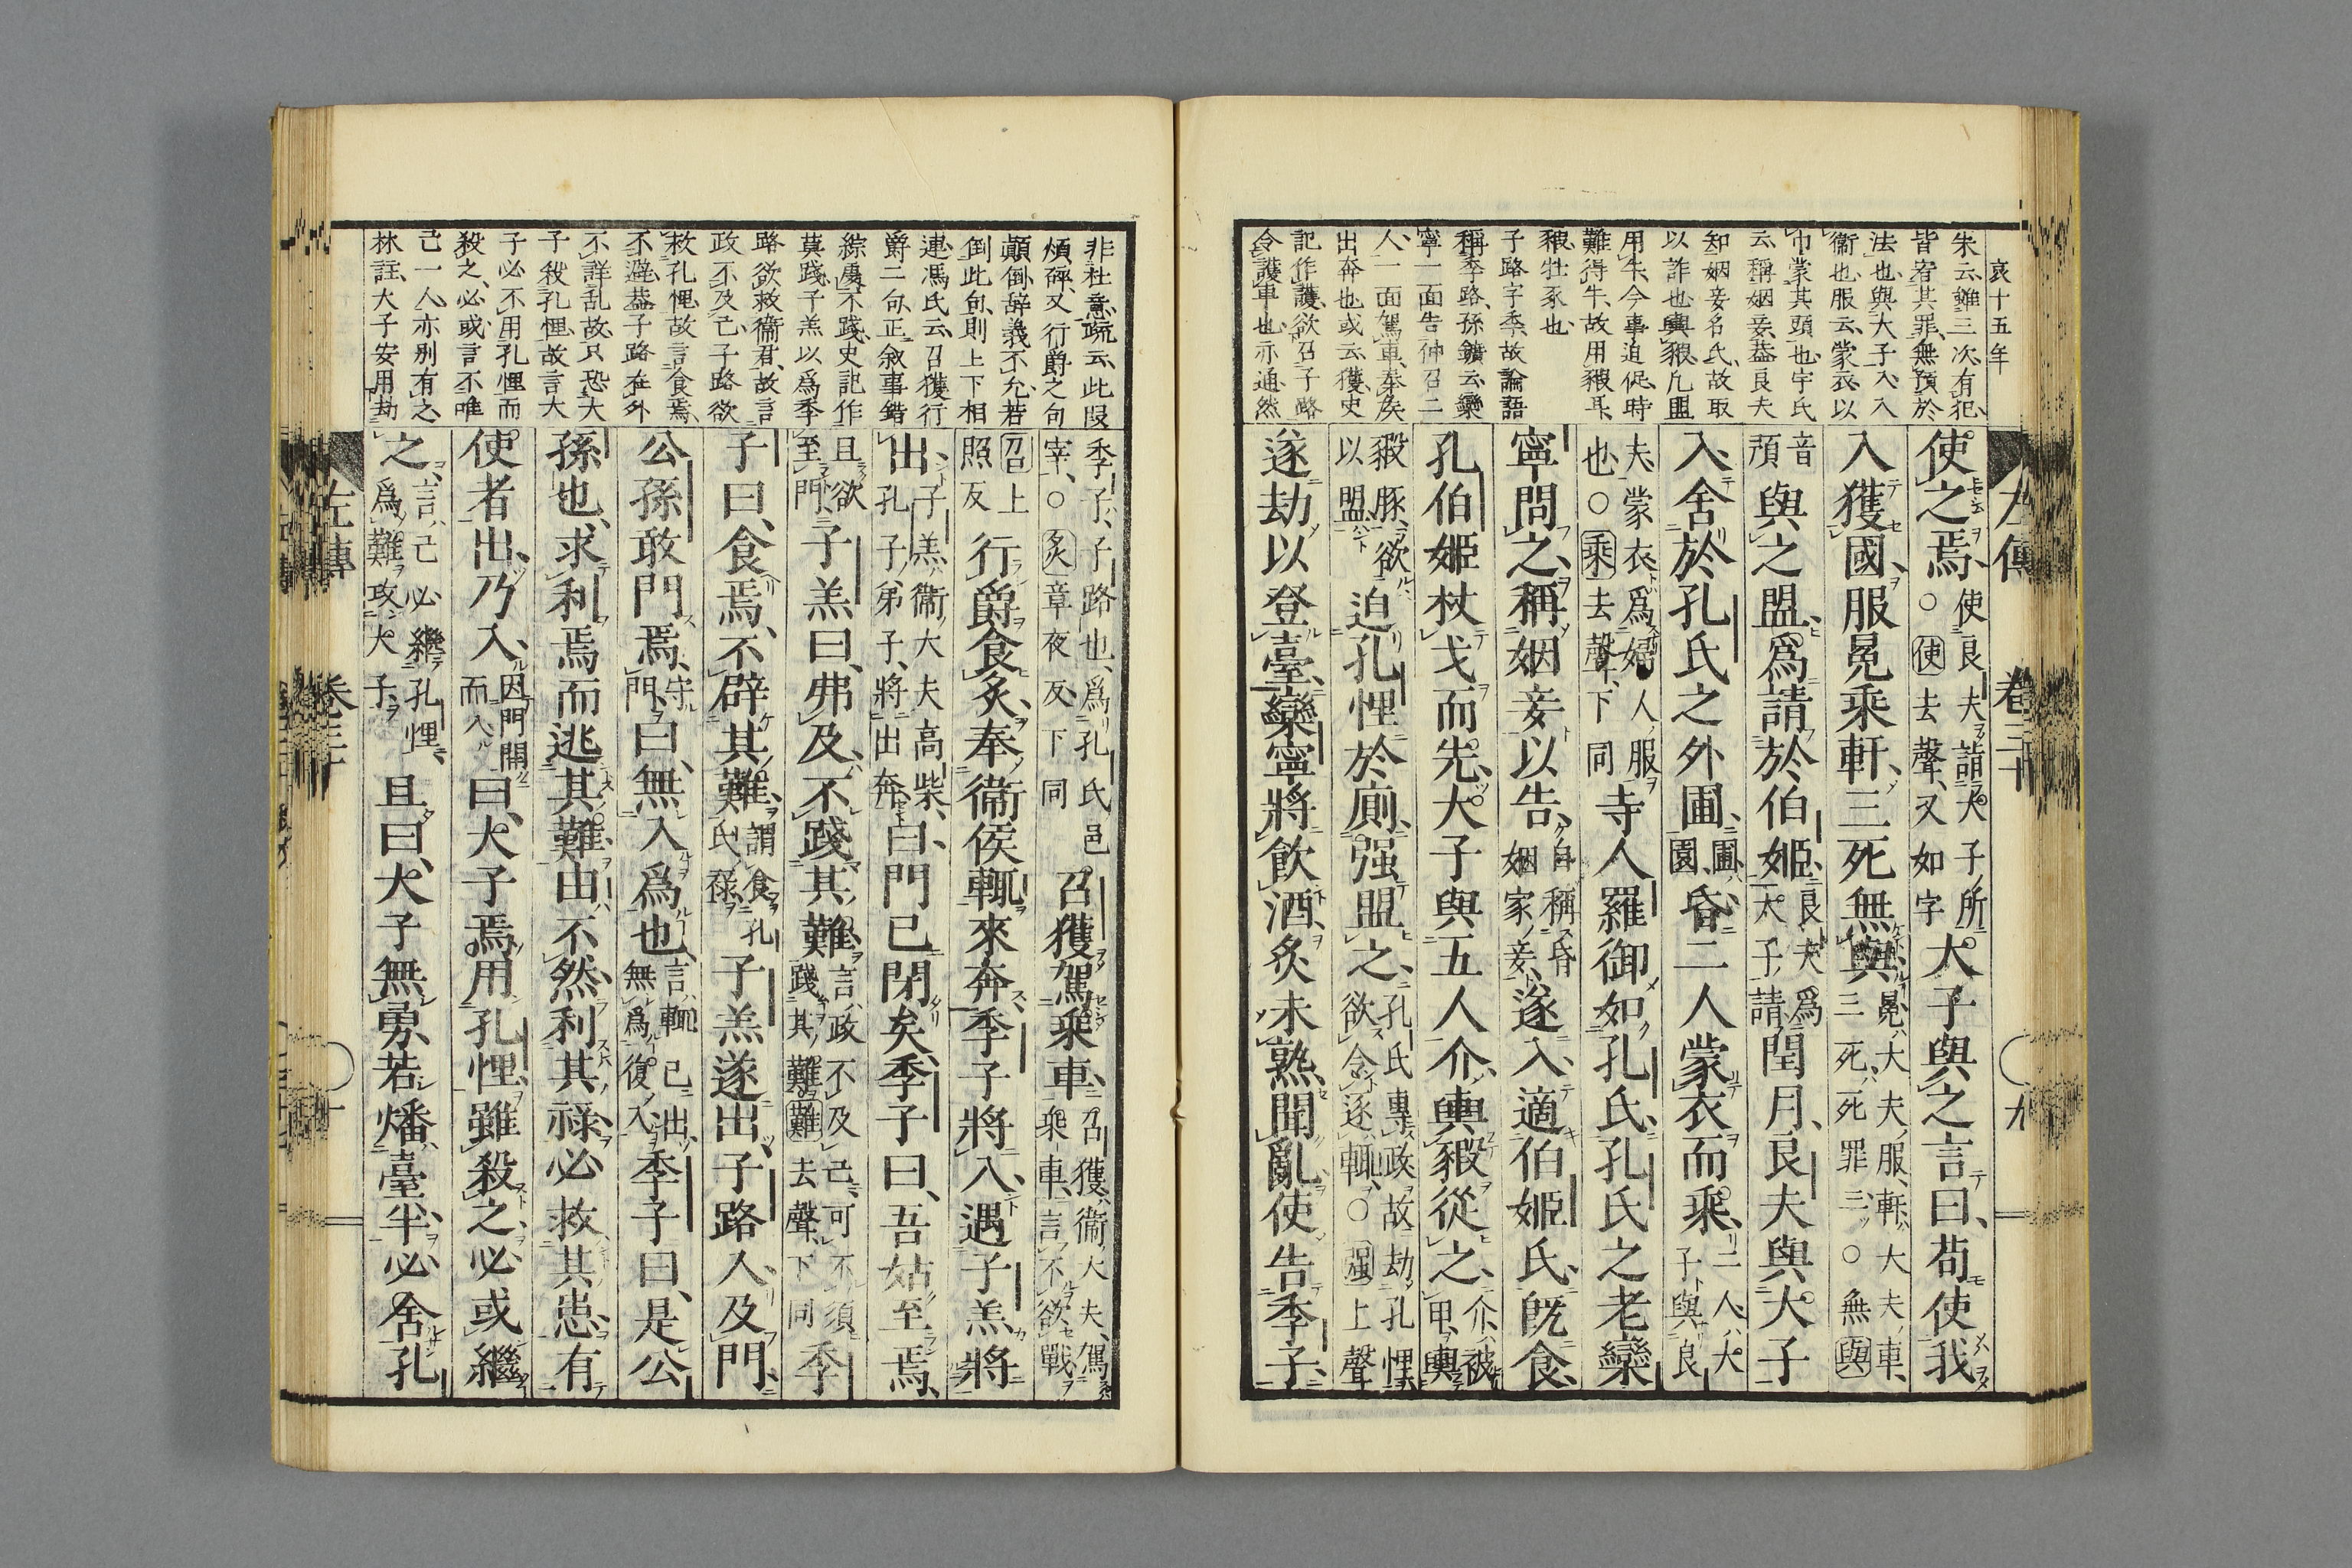 哀十五年
朱云雖三次有犯
皆宥其罪無預於
法也與大子入入
衞也服云蒙衣以
巾蒙其頭也宇氏
云稱姻妾葢良夫
知姻妾名氏故取
以詐也輿豭凡盟
用牛今事迫促時
難得牛故用豭耳
豭牡豕也
子路字季故論語
稱季路孫鑛云欒
寧一面告仲召二
人一面駕車奉矦
出奔也或云獲史
記作護欲召子路
令護車也亦通然
左傳 卷三十 九
使之焉使良夫請大子所○使去聲又如字大子與之言曰苟使我
入獲國服冕乘軒三死無與冕大夫服軒大夫車三死死罪三○無與
音預與之盟爲請於伯姬良夫爲大子請閏月良夫與大子
入舍於孔氏之外圃圃園昏二人蒙衣而乘二人大子與良
夫蒙衣爲婦人服也○乘去聲下同寺人羅御如孔氏孔氏之老欒
寧問之稱姻妾以告自稱昏姻家妾遂入適伯姬氏旣食
孔伯姬杖戈而先大子與五人介輿豭從之介被甲輿
豭豚欲以盟迫孔悝於廁强盟之孔氏專政故劫孔悝欲令逐輒○强上聲
遂劫以登臺欒寧將飲酒炙未熟聞亂使告季子
非杜意疏云此段
煩碎又行爵之句
顚倒辭義不允若
倒此句則上下相
連馮氏云召獲行
爵二句正叙事錯
綜處不踐史記作
莫踐子羔以爲季
路欲救衞君故言
政不及己子路欲
救孔悝故言食焉
不避葢子路在外
不詳乱故只恐大
子殺孔悝故言大
子必不用孔悝而
殺之必或言不唯
己一人亦別有之
林註大子安用劫
季子子路也爲孔氏邑宰○炙章夜反下同召獲駕乘車召獲衞大夫駕乘車言不欲戰
召上照反行爵食炙奉衞侯輒來奔季子將入遇子羔將
出子羔衞大夫高柴孔子弟子將出奔曰門已閉矣季子曰吾姑至焉
且欲至門子羔曰弗及不踐其難言政不及己可不須踐其難難去聲下同季
子曰食焉不辟其難謂食孔氏祿子羔遂出子路入及門
公孫敢門焉守門曰無入爲也言輒已出無爲復入季子曰是公
孫也求利焉而逃其難由不然利其祿必救其患有
使者出乃入因門開而入曰大子焉用孔悝雖殺之必或繼
之言己必繼孔悝爲難攻大子且曰大子無勇若燔臺半必舍孔
左傳 卷三十